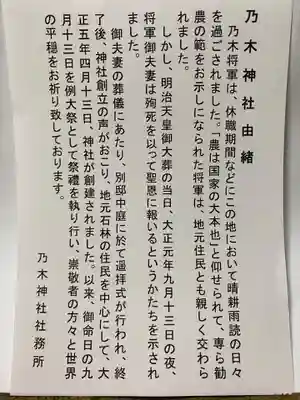 乃木神社由緒
乃木将軍は、休職期間などにこの地において晴耕雨読の日々
を過ごされました。「農は国家の大本也」と仰せられて、専ら勧
農の範をお示しになられた将軍は、地元住民とも親しく交わら
れました。
しかし、明治天皇御大葬の当日、大正元年九月十三日の夜、
将軍御夫妻は殉死を以って聖恩に報いるというかたちを示され
ました。
御夫妻の葬儀にあたり、別邸中庭に於て遥拝式が行われ、終
了後、神社創立の声がおこり、地元石林の住民を中心にして、大
正五年四月十三日、神社が創建されました。以来、御命日の九
月十三日を例大祭として祭禮を執り行い、崇敬者の方々と世界
の平穏をお祈り致しております。
乃木神社社務所